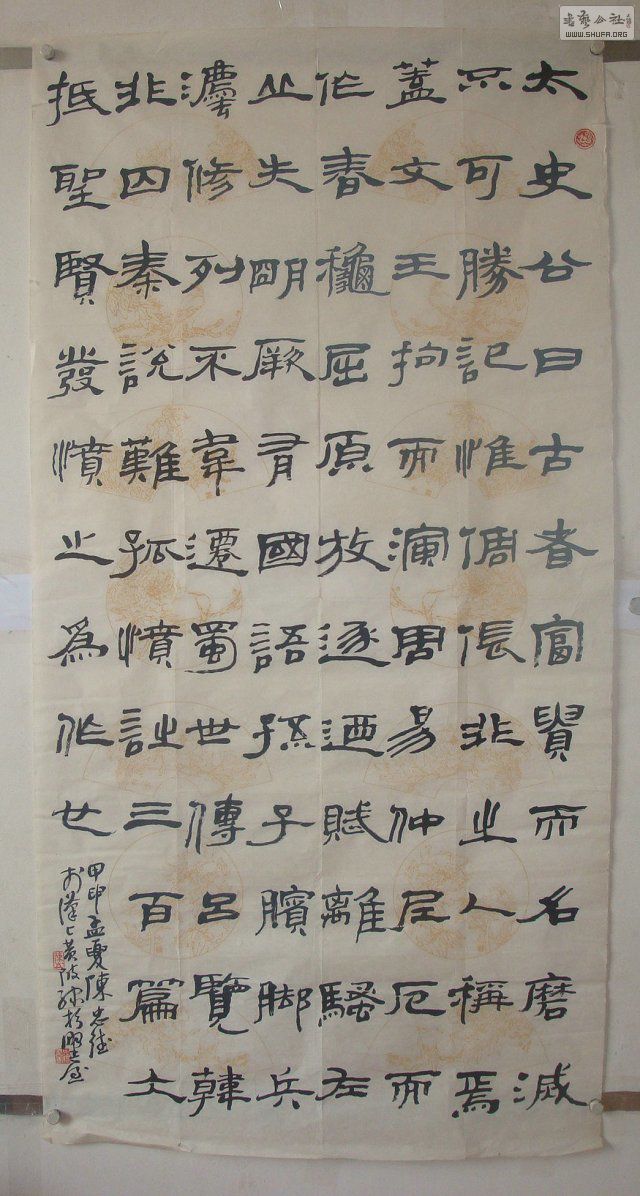 太史公曰古者富貴而名磨滅
不可勝記惟倜倀非之人稱焉
蓋文王拘而演周易仲尼厄而
作春穐屈原放逐迺賦離騷左
丘失朙厥有國語孫子臏脚兵
灋修列不韋遷蜀世傳呂覽韓
非囚秦說難孤憤詩三百篇大
抵聖賢發憤之爲作也
甲申孟夏陳忠
於漢上黃陂
書藝公社
WWW.SHUFA.ORG